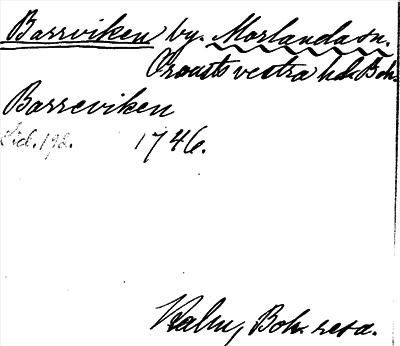 Barrviken by. Morlanda sn.
Orousts vestra hd. Boh.
Barreviken
Sid. 192. 1746.
Kalm, Boh. resa.